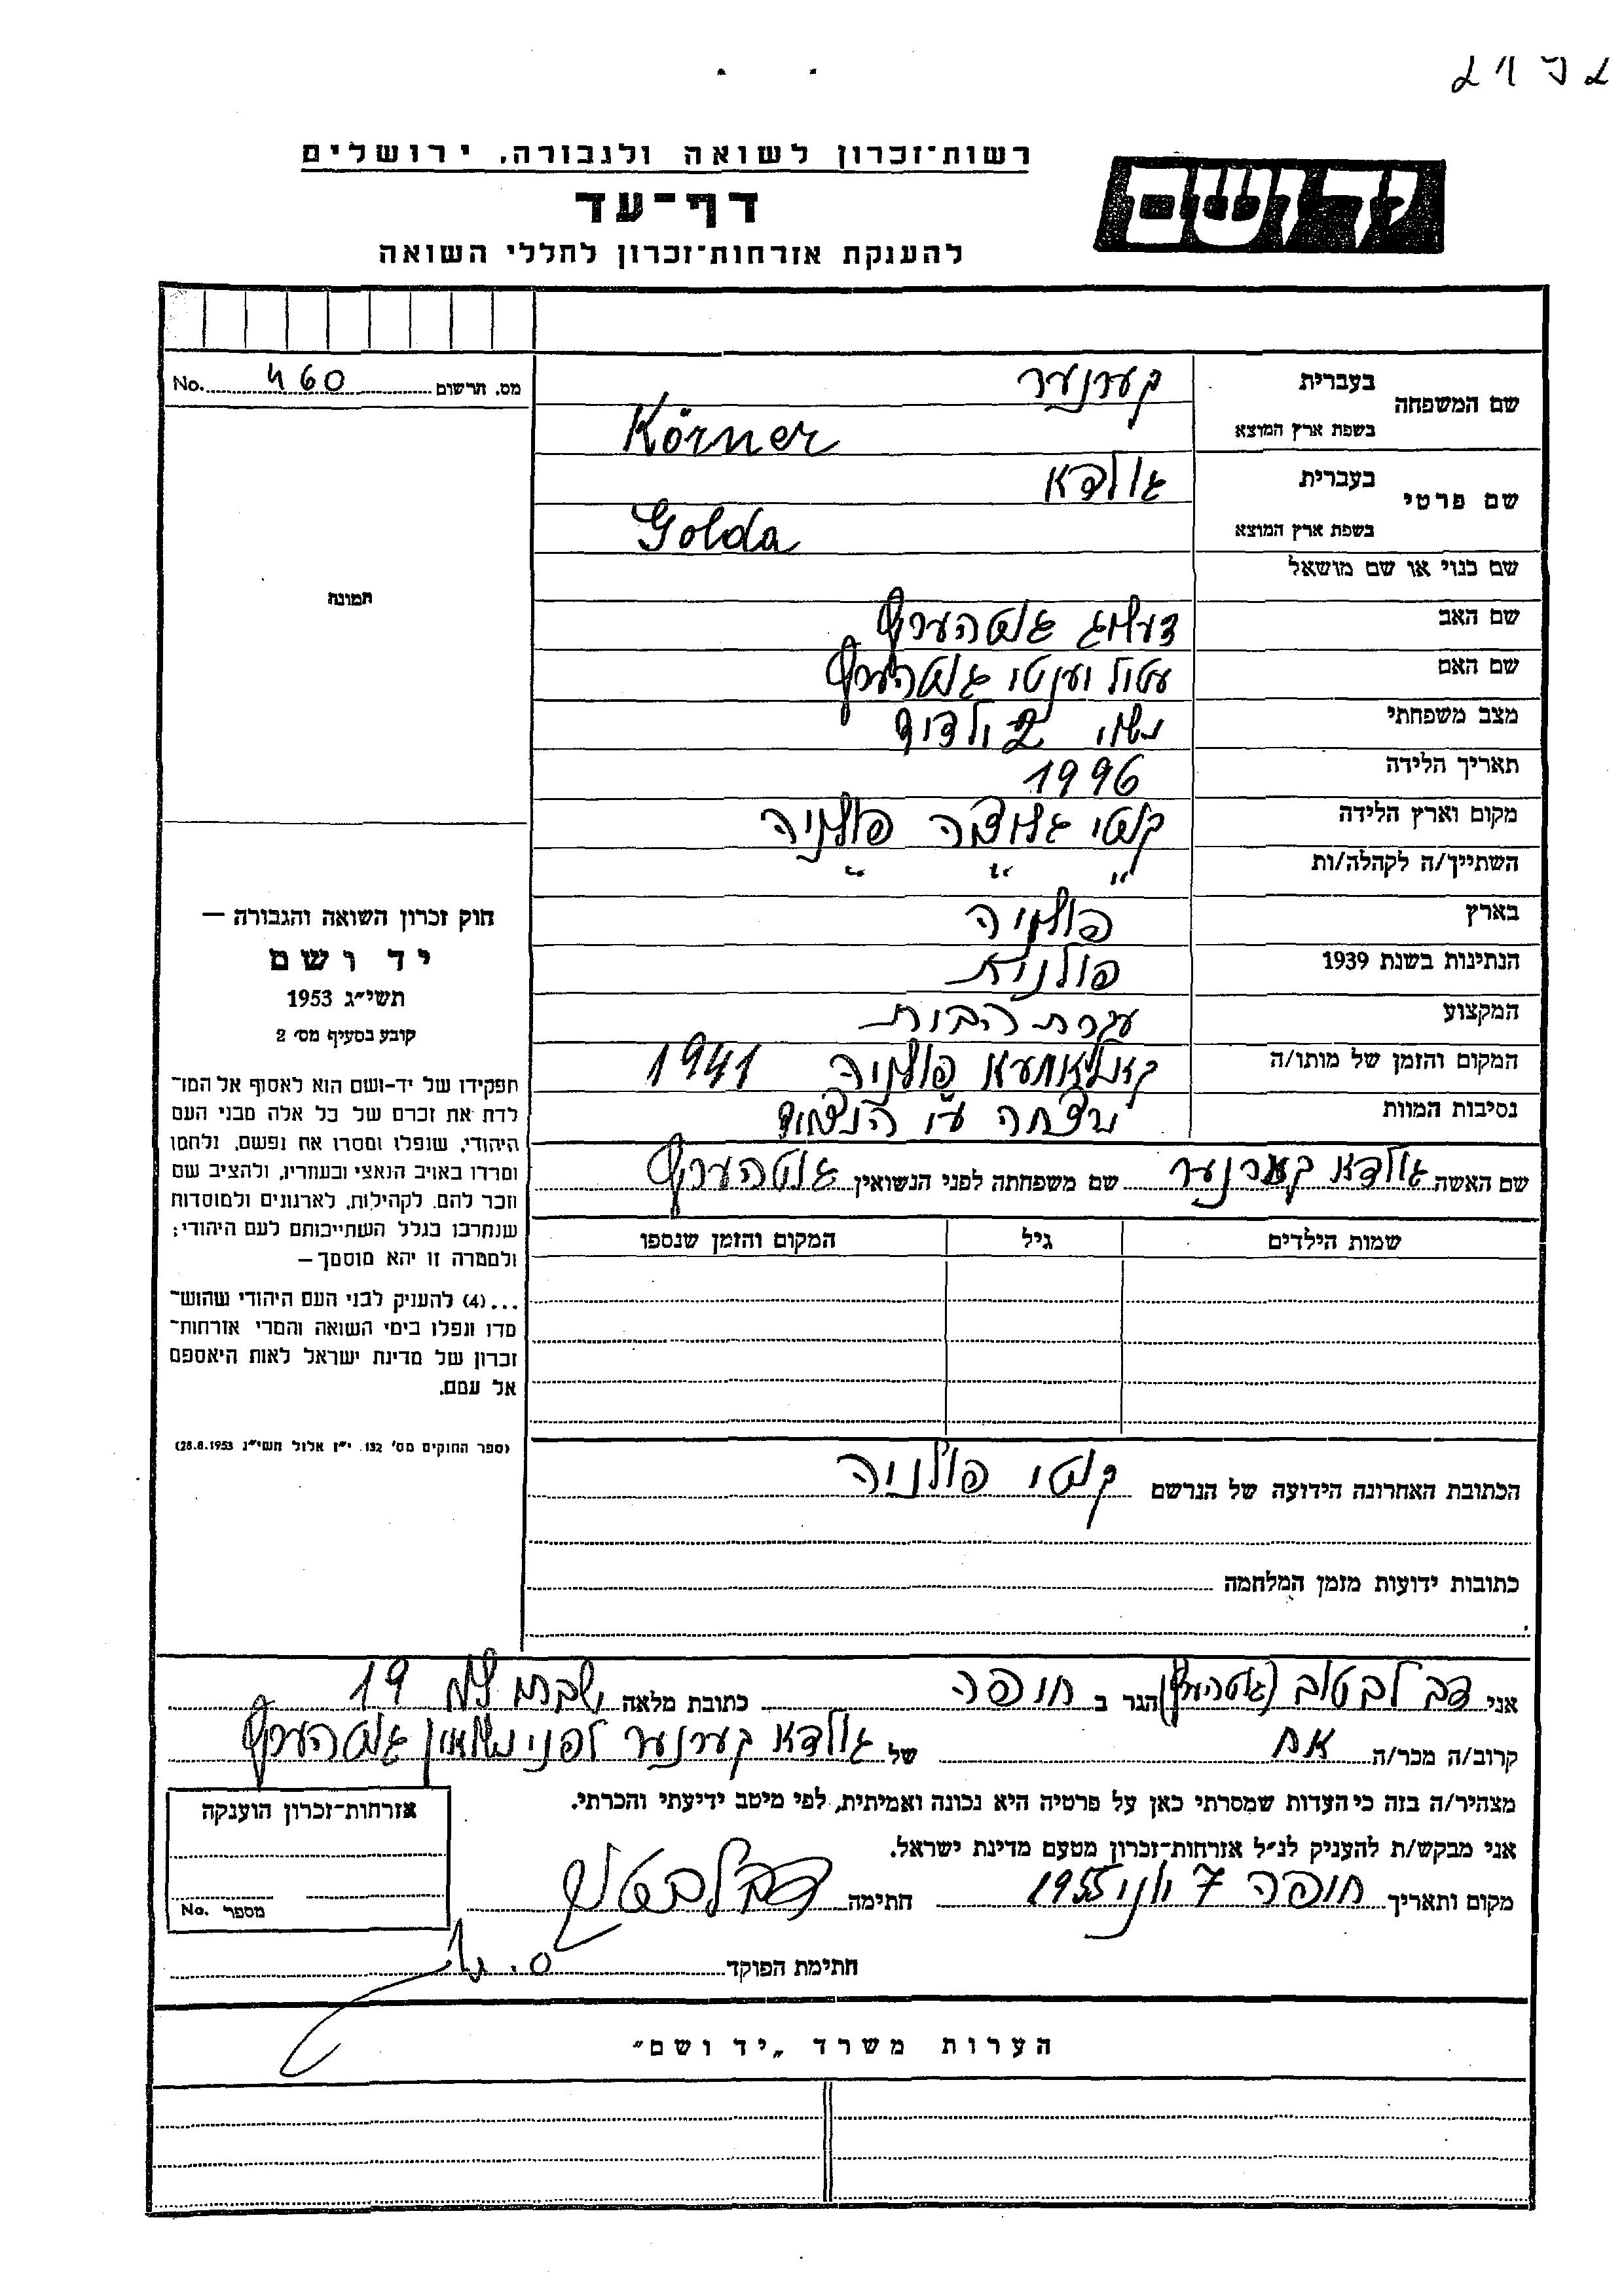 רשות־זכרון לשואה ולגבורה. ירושלים
יד ושם
דף־עד
להענקת אזרחות־זכרון לחללי השואה
No. 460 מס. תרשום
תמונה
חוק זכרון השואה והגבורה —
יד ושם
תשי״ג 1953
קובע בסעיף מס׳ 2
תפקידו של יד-ושם הוא לאסוף אל המו־
לדת את זכרם של כל אלה מבני העם
היהודי, שנפלו ומסרו את נפשם, נלחמו
ומרדו באויב הנאצי ובעוזריו, ולהציב שם
וזכר להם, לקהילות, לארגונים ולמוסדות
שנחרבו בגלל השתייכותם לעם היהודי;
ולמטרה זו יהא מוסמך —
...(4) להעניק לבני העם היהודי שהוש־
מדו ונפלו בימי השואה והמרי אזרחות־
זכרון של מדינת ישראל לאות היאספם
אל עמם.
(ספר החוקים מס׳ 132. י״ז אלול תשי״ג 28.8.1953)
שם המשפחה בעברית קערנער
בשפת ארץ המוצא Körner
שם פרטי בעברית גולדא
בשפת ארץ המוצא Golda
שם כנוי או שם מושאל
שם האב גוטהערץ
שם האם גוטהערץ
מצב משפחתי נשוי 2 ילדים
תאריך הלידה 1996
מקום וארץ הלידה קוטי פולניה
השתייך/ה לקהלה/ות ״ ״ ״
בארץ פולניה
הנתינות בשנת 1939 פולנית
המקצוע עקרת הבית
המקום והזמן של מותו/ה פולניה 1941
נסיבות המוות נרצחה ע״י הנאצים
שם האשה גולדא קערנער שם משפחתה לפני הנשואין גוטהערץ
שמות הילדים גיל המקום והזמן שנספו
הכתובת האחרונה הידועה של הנרשם קוטי פולניה
כתובות ידועות מזמן המלחמה
אני דב לבטוב (גוטהערץ) הגר ב חיפה כתובת מלאה 19
קרוב/ה מכר/ה אח של גולדא קערנער לפני נשואין גוטהערץ
מצהיר/ה בזה כי העדות שמסרתי כאן על פרטיה היא נכונה ואמיתית, לפי מיטב ידיעתי והכרתי.
אני מבקש/ת להעניק לנ״ל אזרחות־זכרון מטעם מדינת ישראל.
מקום ותאריך חיפה 7 יוני 1955 חתימה
חתימת הפוקד
אזרחות־זכרון הוענקה
No. מספר
הערות משרד „יד ושם״